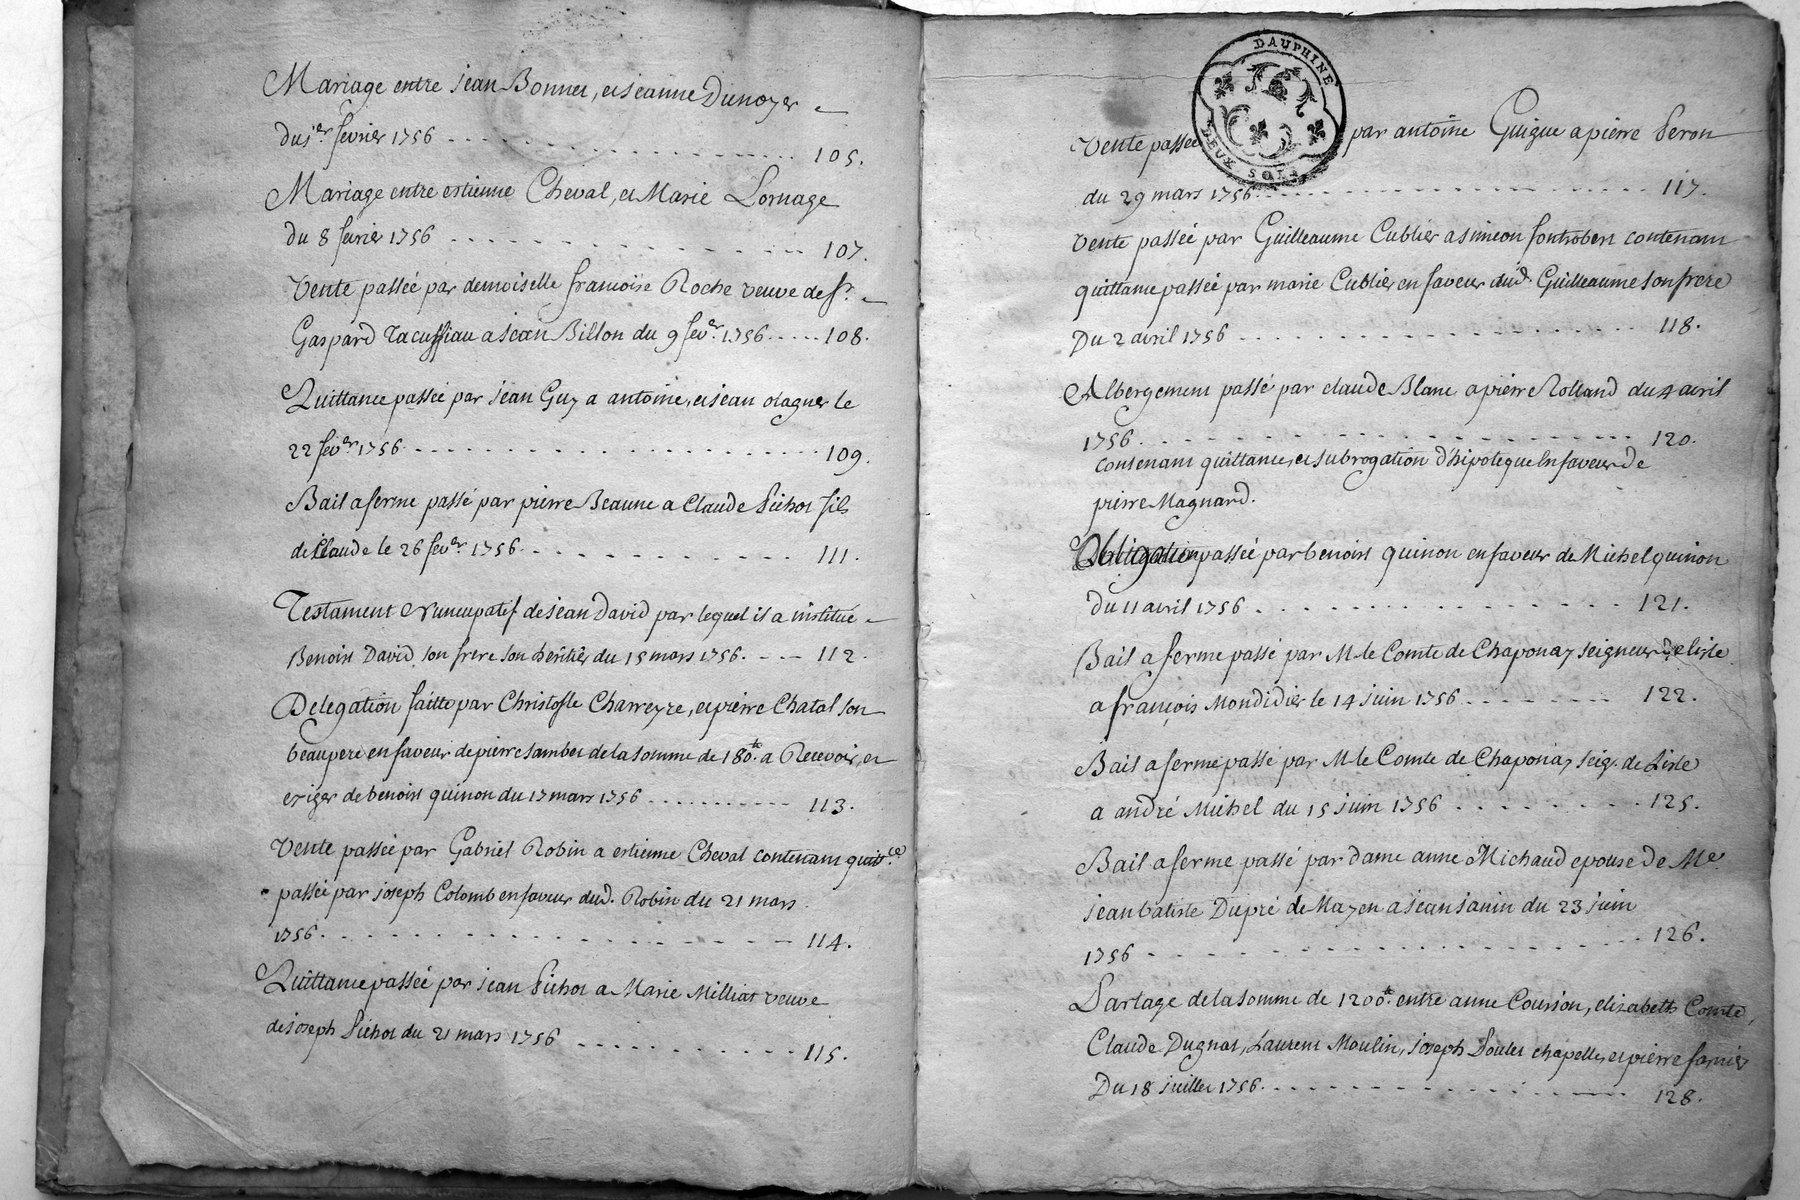 Mariage entre jean Bonnet, et jeanne Dunoyer
du 1er fevrier 1756 105.
Mariage entre estienne Cheval, et Marie Lornage
du 8 fevrier 1756 107.
Vente passée par demoiselle francoise Roche veuve de sr.
Gaspard Tacussiau a jean Billon du 9 fevr. 1756 108.
Quittance passée par jean Guy a antoine, et jean olagner le
22 fevr. 1756 109.
Bail a ferme passé par pierre Beaune a Claude Pichot fils
de Claude le 26 fevr. 1756 111.
Testament Nuncupatif de jean David par lequel il a institué
Benoist David son frere son heritier du 15 mars 1756. 112.
Delegation faitte par Christofle Charreyre, et pierre Chatal son
beaupere en faveur de pierre jambet de la somme de 180tt. a Recevoir, et
exiger de benoist quinon du 17 mars 1756 113.
Vente passée par Gabriel Robin a estienne Cheval contenant quittce.
passée par joseph Colomb en faveur dud. Robin du 21 mars
1756 114.
Quittance passée par jean Pichot a Marie Milliat veuve
de joseph Pichot du 21 mars 1756 115.
DAUPHINE
DEUX SOLS
Vente passée par antoine Guigue a pierre Peron
du 29 mars 1756 117.
Vente passée par Guilleaume Cublier a simeon fontrobert contenant
quittance passée par marie Cublier en faveur dud. Guilleaume son frere
Du 2 avril 1756 118.
Albergement passé par claude Blanc a pierre Rolland du 4 avril
1756 120.
contenant quittance, et subrogation d'hipoteque en faveur de
pierre Magnard.
Obligation passée par benoist quinon en faveur de Michel quinon
du 11 avril 1756 121.
Bail a ferme passé par M. le Comte de Chaponay seigneur de lisle
a françois Mondidier le 14 juin 1756 122.
Bail a ferme passé par M. le Comte de Chaponay seig. de Lisle
a andré Michel du 15 juin 1756 125.
Bail a ferme passé par dame anne Michaud epouse de Me.
jean batiste Dupré de Mayen a jean janin du 23 juin
1756 126.
Partage de la somme de 1200tt. entre anne Coursion, elizabeth Comte,
Claude Dugnat, Laurent Moulin, joseph Poulet chapelle, et pierre farnier
Du 18 juillet 1756 128.